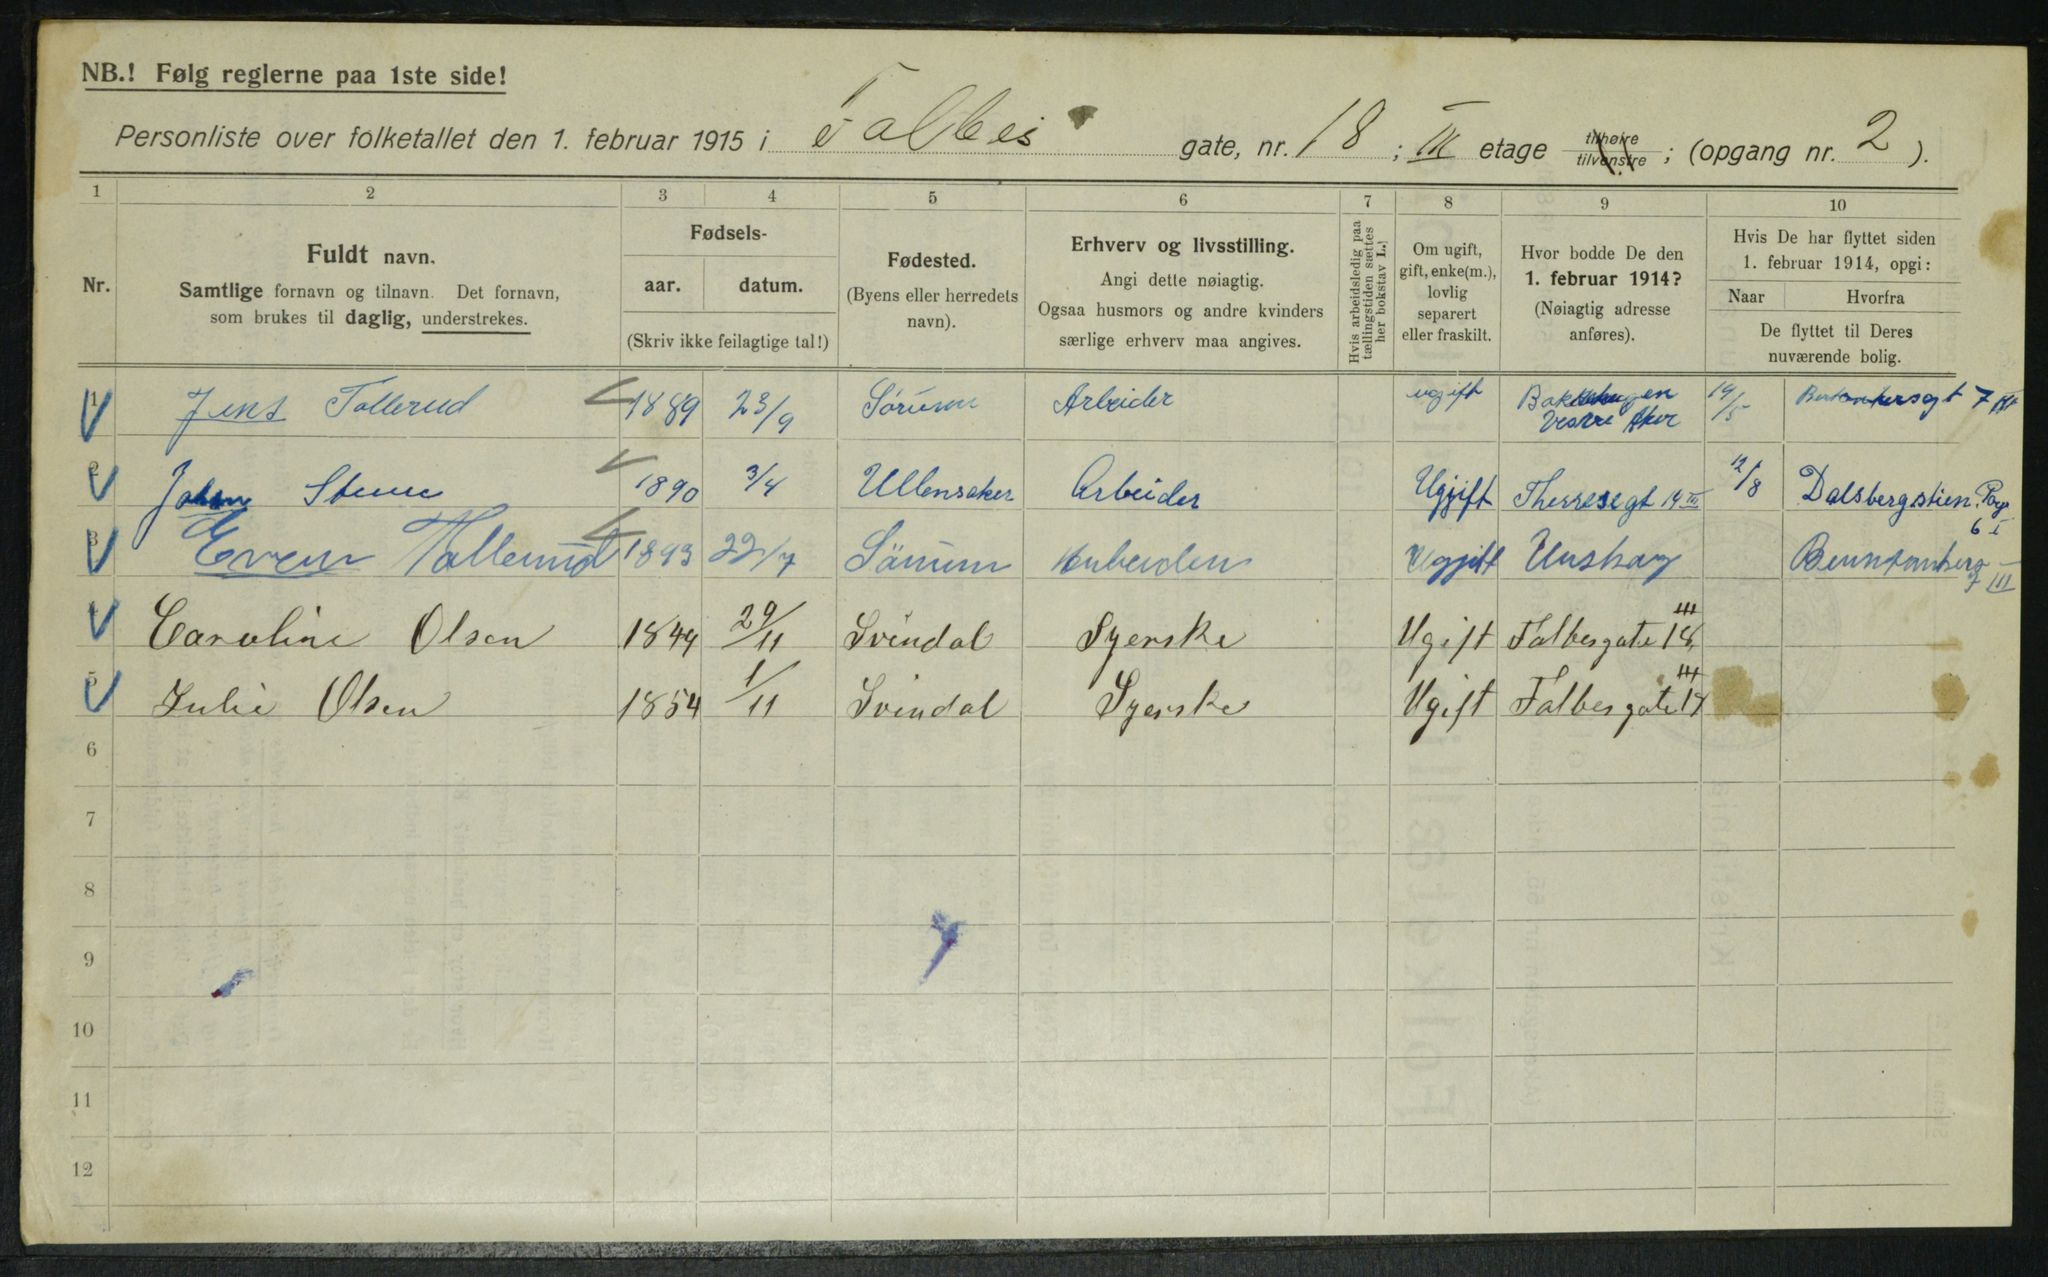 NB.! Følg reglerne paa 1ste side!
Personliste over folketallet den 1. februar 1915 i Falbes gate, nr. 18 ; III etage tilhøire tilvenstre ; (opgang nr. 2 ).
1 2 3 4 5 6 7 8 9 10
Nr.
Fuldt navn.
Samtlige fornavn og tilnavn. Det fornavn,
som brukes til daglig, understrekes.
Fødsels-
aar. datum.
(Skriv ikke feilagtige tal!)
Fødested.
(Byens eller herredets
navn).
Erhverv og livsstilling.
Angi dette nøiagtig.
Ogsaa husmors og andre kvinders
særlige erhverv maa angives.
Hvis arbeidsledig paa
tællingstiden sættes
her bokstav L.)
Om ugift,
gift, enke(m.),
lovlig
separert
eller fraskilt.
Hvor bodde De den
1. februar 1914?
(Nøiagtig adresse
anføres).
Hvis De har flyttet siden
1. februar 1914, opgi:
Naar Hvorfra
De flyttet til Deres
nuværende bolig.
1 Jens Tollerud 1889 23/9 Sørum Arbeider ugift Vestre Aker 14/5 7 III
2 Johan 1890 3/4 Ullensaker Arbeider Ugift Therresegt 14 III 12/8 Dalsbergstien
6 I
3 Even Tollerud 1893 22/7 Sörum Ugift
7 III
4 Caroline Olsen 1849 29/11 Svindal Syerske Ugift Falbesgate 18 III
5 Julie Olsen 1854 1/11 Svindal Syerske Ugift Falbesgate 18 III
6
7
8
9
10
11
12